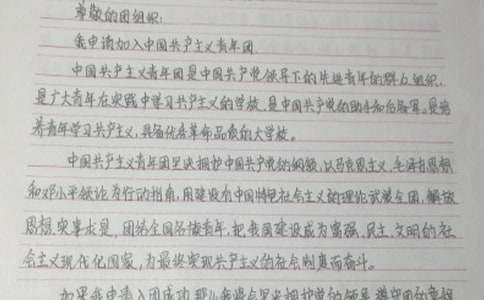 尊敬的团组织:
我申请加入中国共产主义青年团。
中国共产主义青年团是中国共产党领导下的先进青年的群众组织,
是广大青年在实践中学习共产主义的学校,是中国共产党的助手和后备军。是培
养青年学习共产主义,具备优秀革命品质的大学校。
中国共产主义青年团坚决拥护中国共产党的纲领,以马克思主义,毛泽东思想
和邓小平理论为行动指南,用建设有中国特色社会主义的理论武装全团,解放
思想,实事求是,团结全国各族青年,把我国建设成为富强、民主、文明的社
会主义现代化国家,为最终实现共产主义的社会制度而奋斗。
如果我申请入团成功,那么我将会坚决拥护党的领导,遵守团的章程